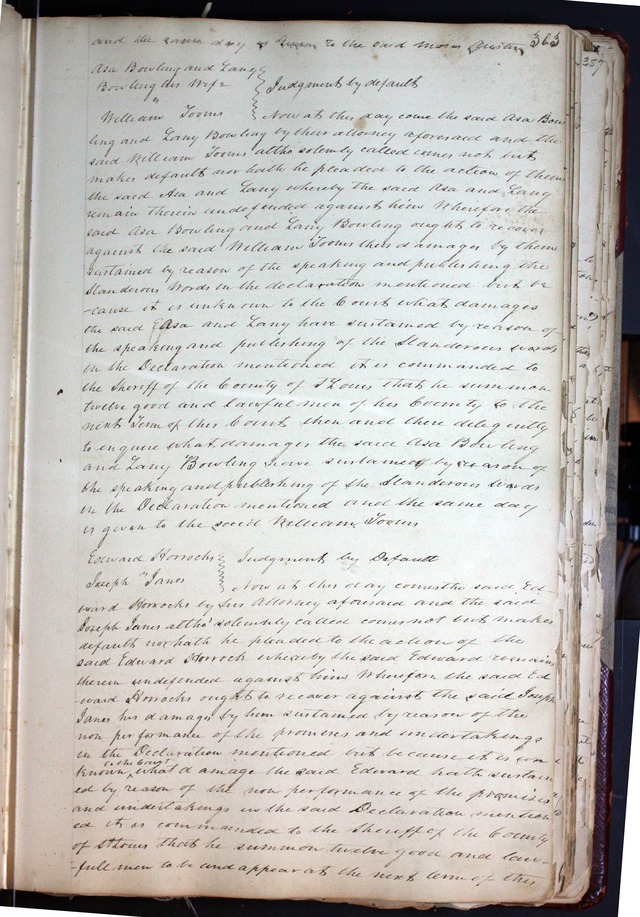 363
and the same day is given to the said Moses
Asa Bowling and Lany
Bowling his Wife
vs
Judgment by default
William Tooms
Now at this day come the said Asa Bow
ling and Lany Bowling by their attorney aforesaid and the
said William Tooms altho solemnly called comes not but
makes default nor hath he pleaded to the action of them
the said Asa and Lany whereby the said Asa and Lany
remain therein undefended against him Wherefore the
said Asa Bowling and Lany Bowling ought to recover
against the said William Tooms their damages by them
sustained by reason of the speaking and publishing the
Slanderous Words in the declaration mentioned but be
-cause it is unknown to the Court what damages
the said Asa and Lany have sustained by reason of
the speaking and publishing of the Slanderous words
in the Declaration mentioned it is commanded to
the Sheriff of the County of St Louis that he summon
twelve good and lawful men of his County to the
next Term of this Court then and there diligently
to enquire what damages the said Asa Bowling
and Lany Bowling have sustained by reason of
the speaking and publishing of the Slanderous words
in the Declaration mentioned and the same day
is given to the said William Tooms
Edward Horrocks
vs
Judgment by Default
Joseph Janes
Now at this day comes the said Ed-
ward Horrocks by his Attorney aforesaid and the said
Joseph Janes altho' solemnly called comes not but makes
default nor hath he pleaded to the action of the
said Edward Horrock whereby the said Edward remains
therein undefended against him Wherefore the said Ed
ward Horrocks ought to recover against the said Joseph
Janes his damages by him sustained by reason of the
non performance of the promises and undertakings
in the Declaration mentioned but because it is un
to the Court
known, what damage the said Edward hath sustain
ed by reason of the non performance of the promises
and undertakings in the said Declaration mention
ed it is commanded to the Sheriff of the County
of St Louis that he summon twelve good and law-
full men to be and appear at the next term of this
357